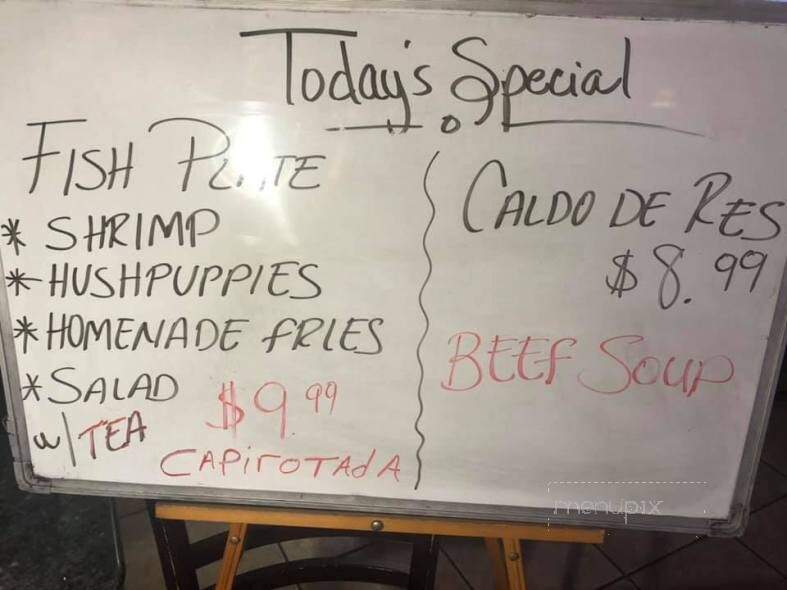 Today's Special
FISH PLATE
* SHRIMP
* HUSHPUPPIES
* HOMENADE FRIES
* SALAD
w/ TEA
$9.99
CAPIROTAdA
CALDO DE RES
$8.99
BEEF SOUP
menupix